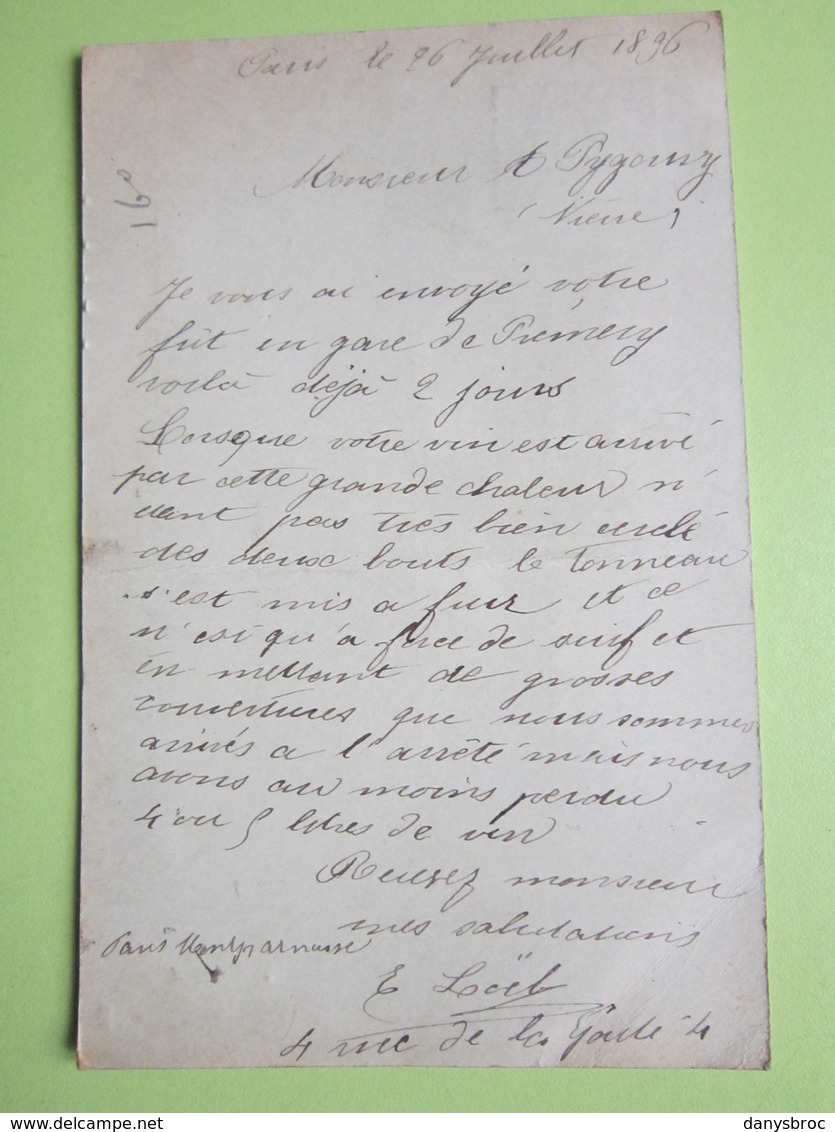 Paris le 26 Juillet 1896
Monsieur A Pygoury
160
Je vous ai envoyé votre
fût en gare de Prémery
voilà déjà 2 jours
Lorsque votre vin est arrivé
par cette grande chaleur n'
étant pas très bien cerclé
des deux bouts le tonneau
s'est mis a fuir et ce
n'est qu'a force de suif et
en mettant de grosses
couvertures que nous sommes
arrivés a l'arrêté mais nous
avons au moins perdu
4 ou 5 litres de vin
Recevez monsieur
mes salutations
Paris Montparnasse
E Loëb
4 rue de la Gaité 4
delcampe.net
danysbroc